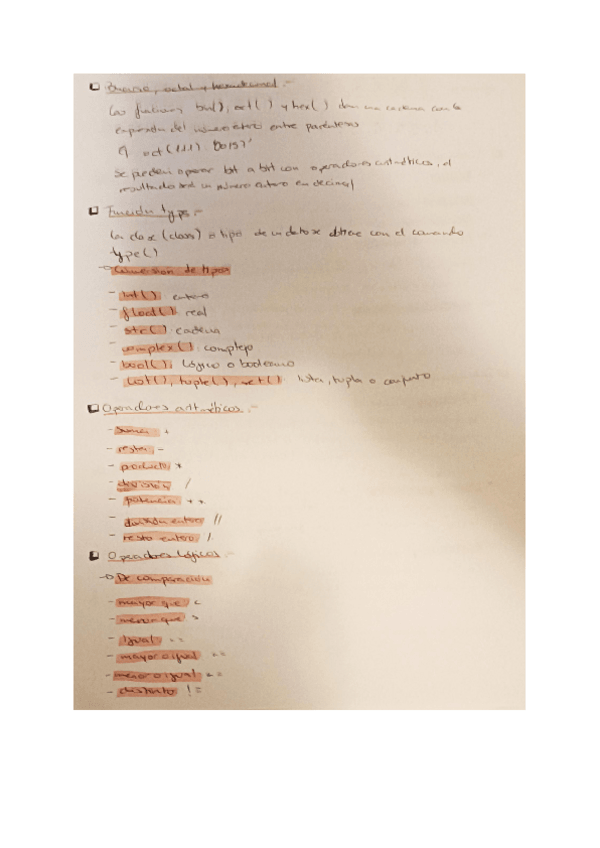 Binario, octal y hexadecimal.-
Las funciones bin(), oct() y hex() dan una cadena con la
expresión del número entero entre paréntesis
oct(111) '0o157'
Se pueden operar bit a bit con operadores aritméticos, el
resultado será un número entero en decimal
Función type.-
La clase (class) o tipo de un dato se obtiene con el comando
type()
Conversion de tipos
- int() entero
- float() real
- str() cadena
- complex() complejo
- bool() lógico o booleano
- list(), tuple(), set() lista, tupla o conjunto
Operadores aritméticos.-
- suma +
- resta -
- producto *
- división /
- potencia **
- división entera //
- resto entero
Operadores lógicos.-
De comparación
- mayor que <
- menor que >
- Igual ==
- mayor o igual
- menor o igual
- distinto !=